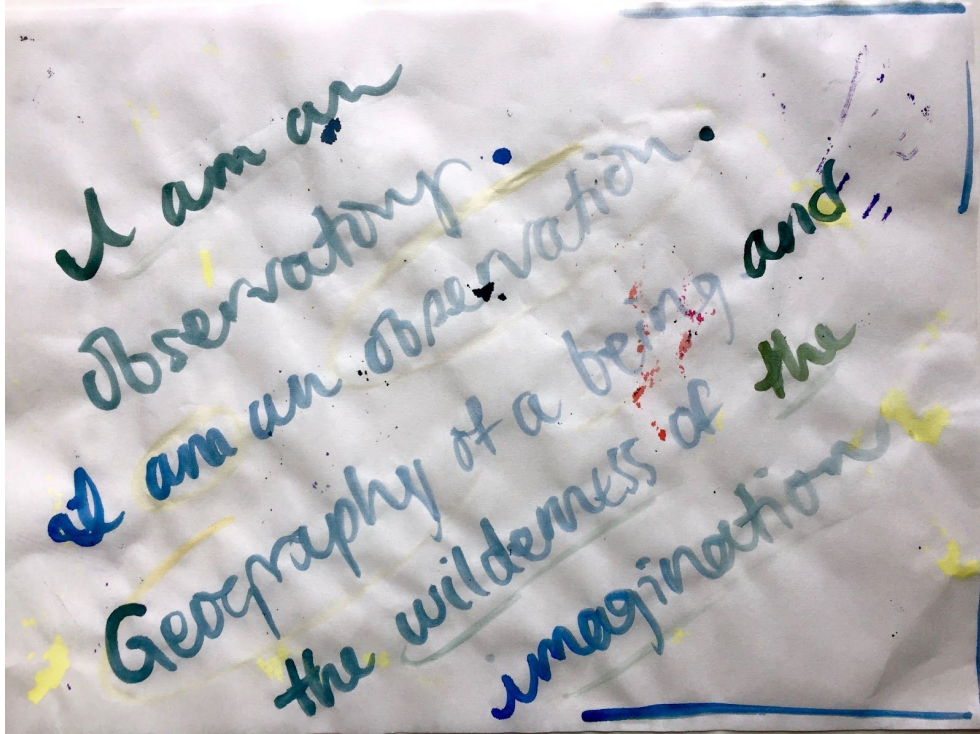 I am an
Observatory.
I am an observation.
Geography of a being and
the wilderness of the
imagination